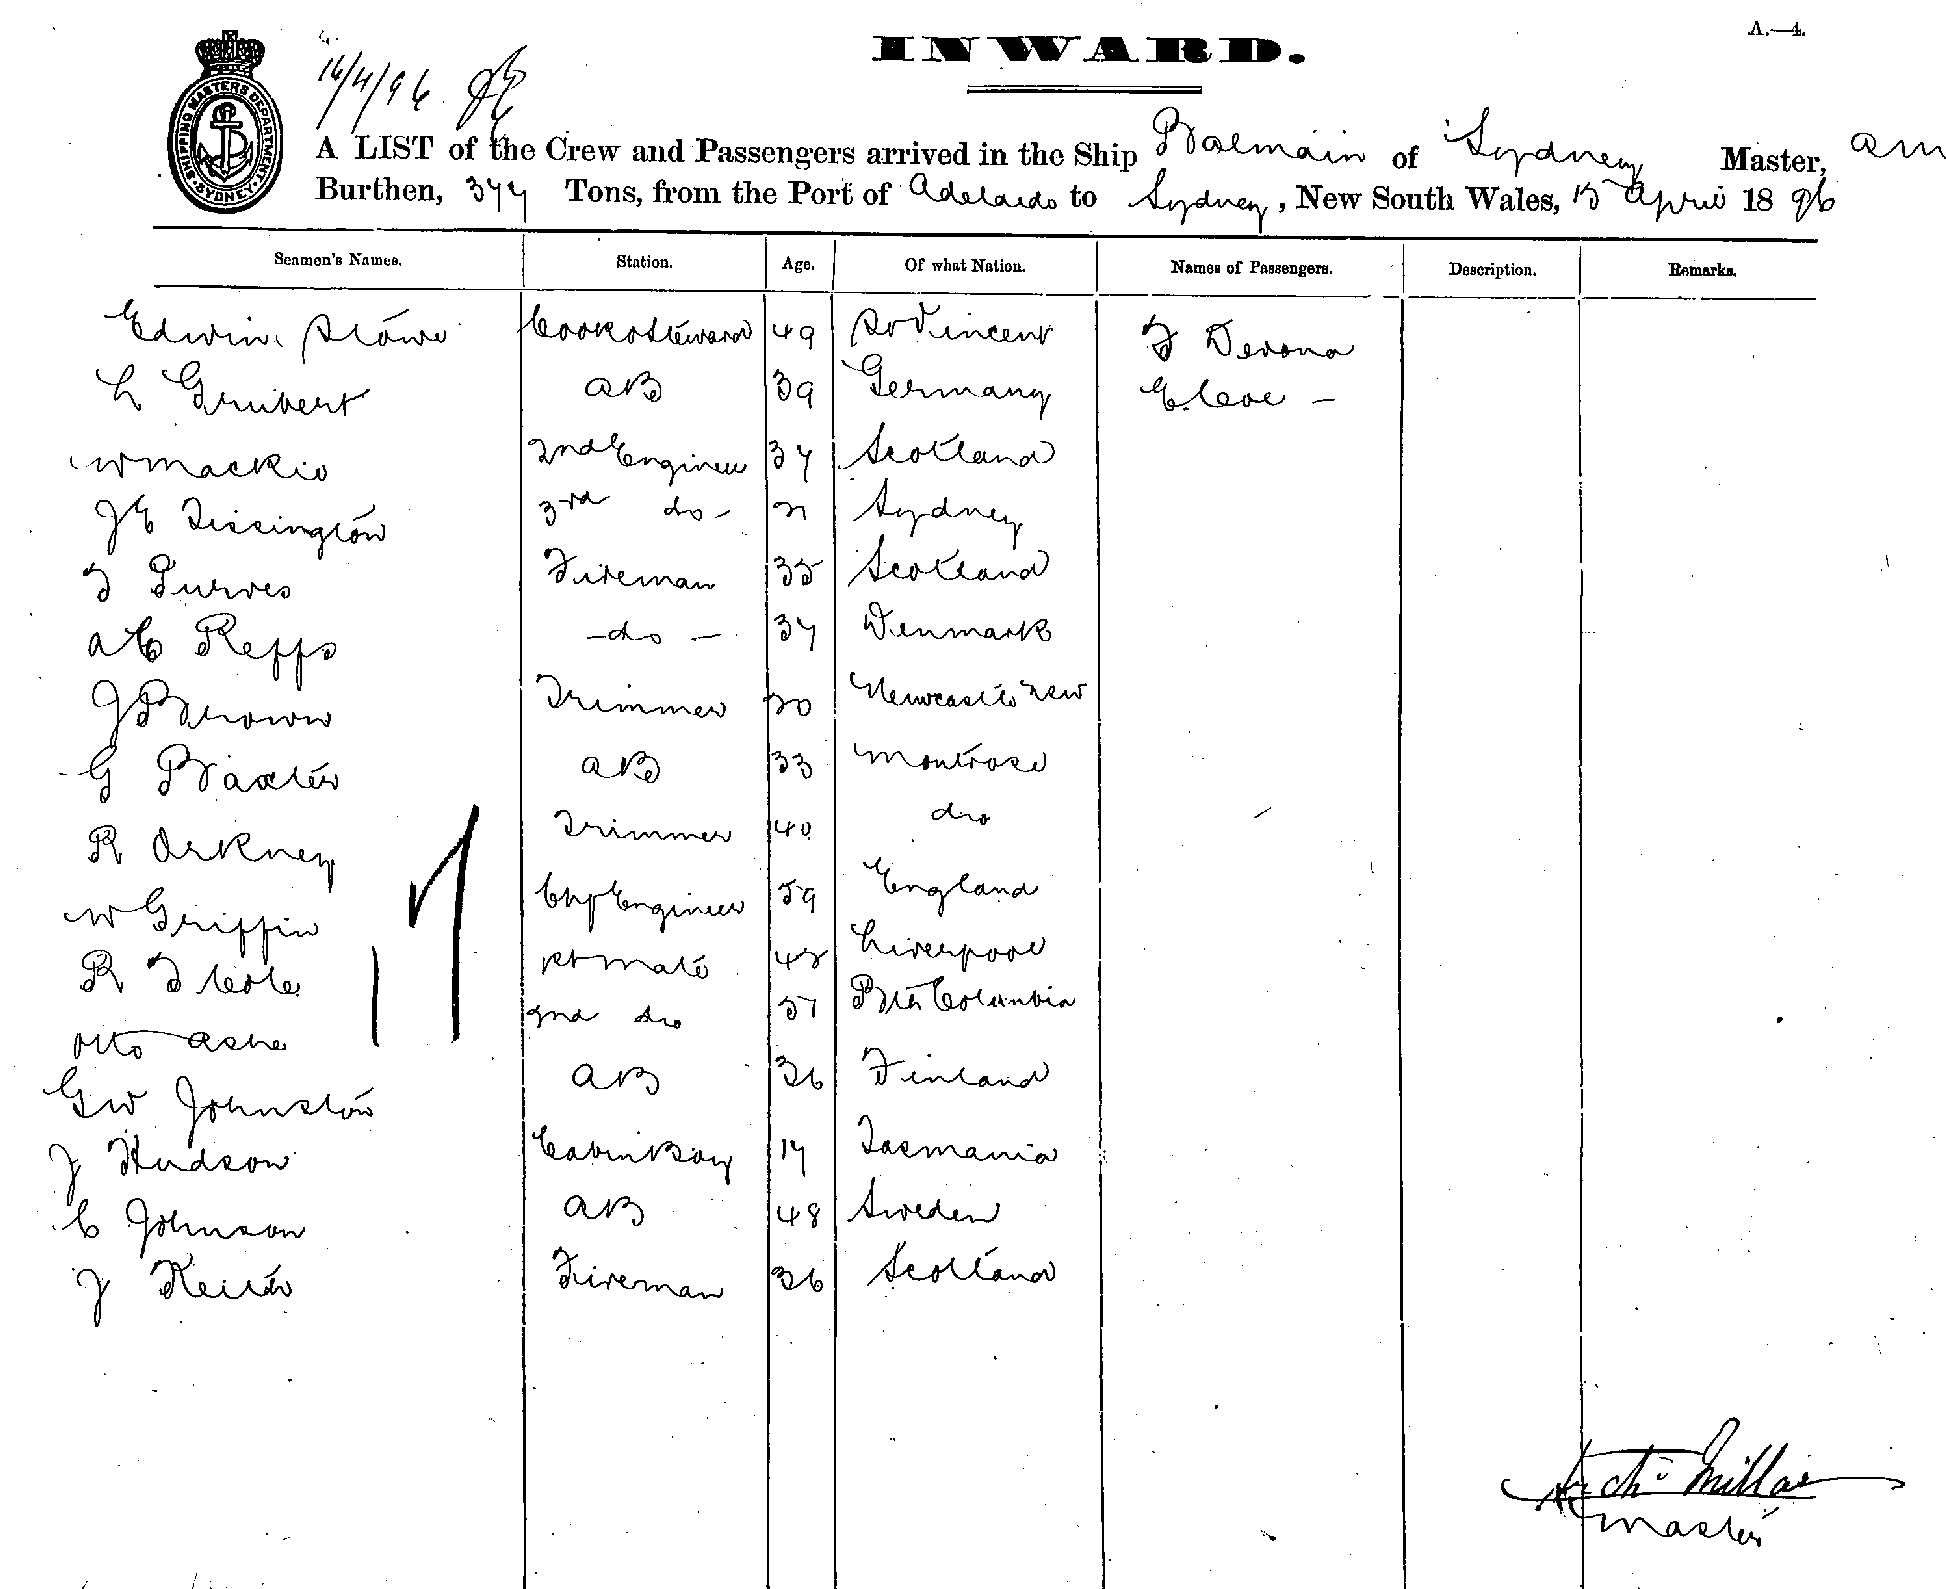 A.—4.
INWARD.
16/4/96
SHIPPING MASTERS DEPARTMENT SYDNEY
A LIST of the Crew and Passengers arrived in the Ship Balmain of Sydney Master, AM
Burthen, 377 Tons, from the Port of Adelaide to Sydney, New South Wales, 15 April 1896
Seamen's Names. Station. Age. Of what Nation. Names of Passengers. Description. Remarks.
Edwin Stowe Cook & Steward 49 St Vincent F Devona
L Grubert AB 39 Germany E. Cove -
W Mackie 2nd Engineer 37 Scotland
JE Tissington 3rd do - 21 Sydney
T Purves Fireman 35 Scotland
A C Repps - do - 37 Denmark
J Brown Trimmer 20 Newcastle NSW
G Baxter AB 33 Montrose
R Orkney Trimmer 40 do
W Griffin Chf Engineer 59 England
R T Cole 1st Mate 42 Liverpool
Otto Ashe 2nd do 37 Bth Columbia
GW Johnston AB 36 Finland
J Hudson Cabin Boy 17 Tasmania
C Johnson AB 48 Sweden
J Keith Fireman 36 Scotland
17
Archd Millar
Master